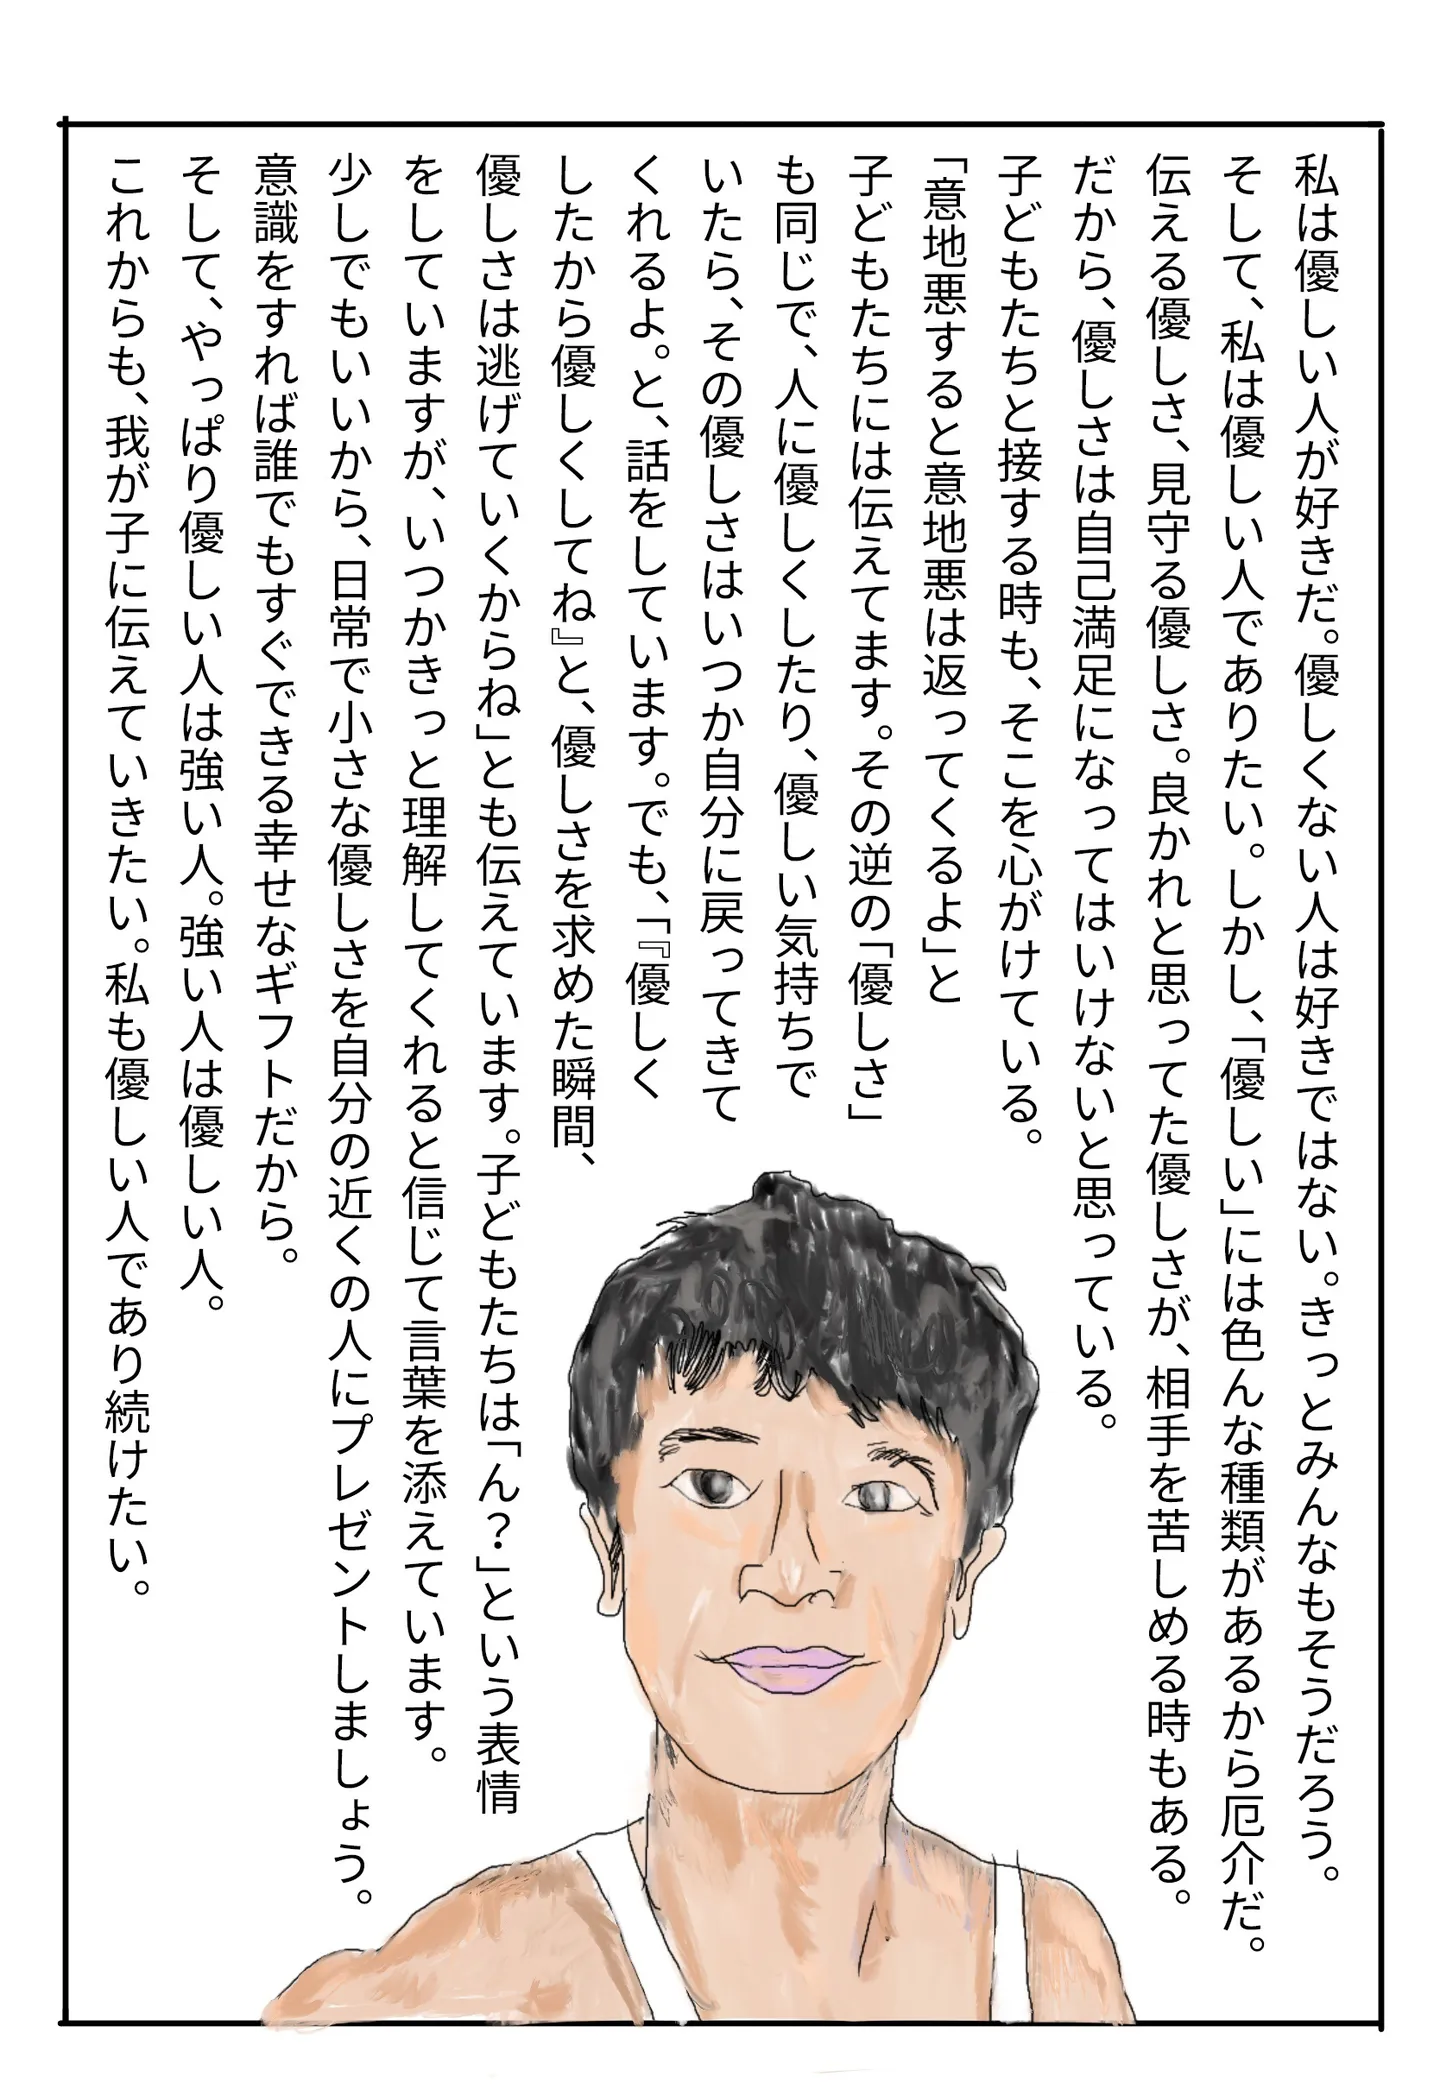 私は優しい人が好きだ。優しくない人は好きではない。きっとみんなもそうだろう。
そして、私は優しい人でありたい。しかし、「優しい」には色んな種類があるから厄介だ。
伝える優しさ、見守る優しさ。良かれと思ってた優しさが、相手を苦しめる時もある。
だから、優しさは自己満足になってはいけないと思っている。
子どもたちと接する時も、そこを心がけている。
「意地悪すると意地悪は返ってくるよ」と
子どもたちには伝えてます。その逆の「優しさ」
も同じで、人に優しくしたり、優しい気持ちで
いたら、その優しさはいつか自分に戻ってきて
くれるよ。と、話をしています。でも、「『優しく
したから優しくしてね』と、優しさを求めた瞬間、
優しさは逃げていくからね」とも伝えています。子どもたちは「ん？」という表情
をしていますが、いつかきっと理解してくれると信じて言葉を添えています。
少しでもいいから、日常で小さな優しさを自分の近くの人にプレゼントしましょう。
意識をすれば誰でもすぐできる幸せなギフトだから。
そして、やっぱり優しい人は強い人。強い人は優しい人。
これからも、我が子に伝えていきたい。私も優しい人であり続けたい。